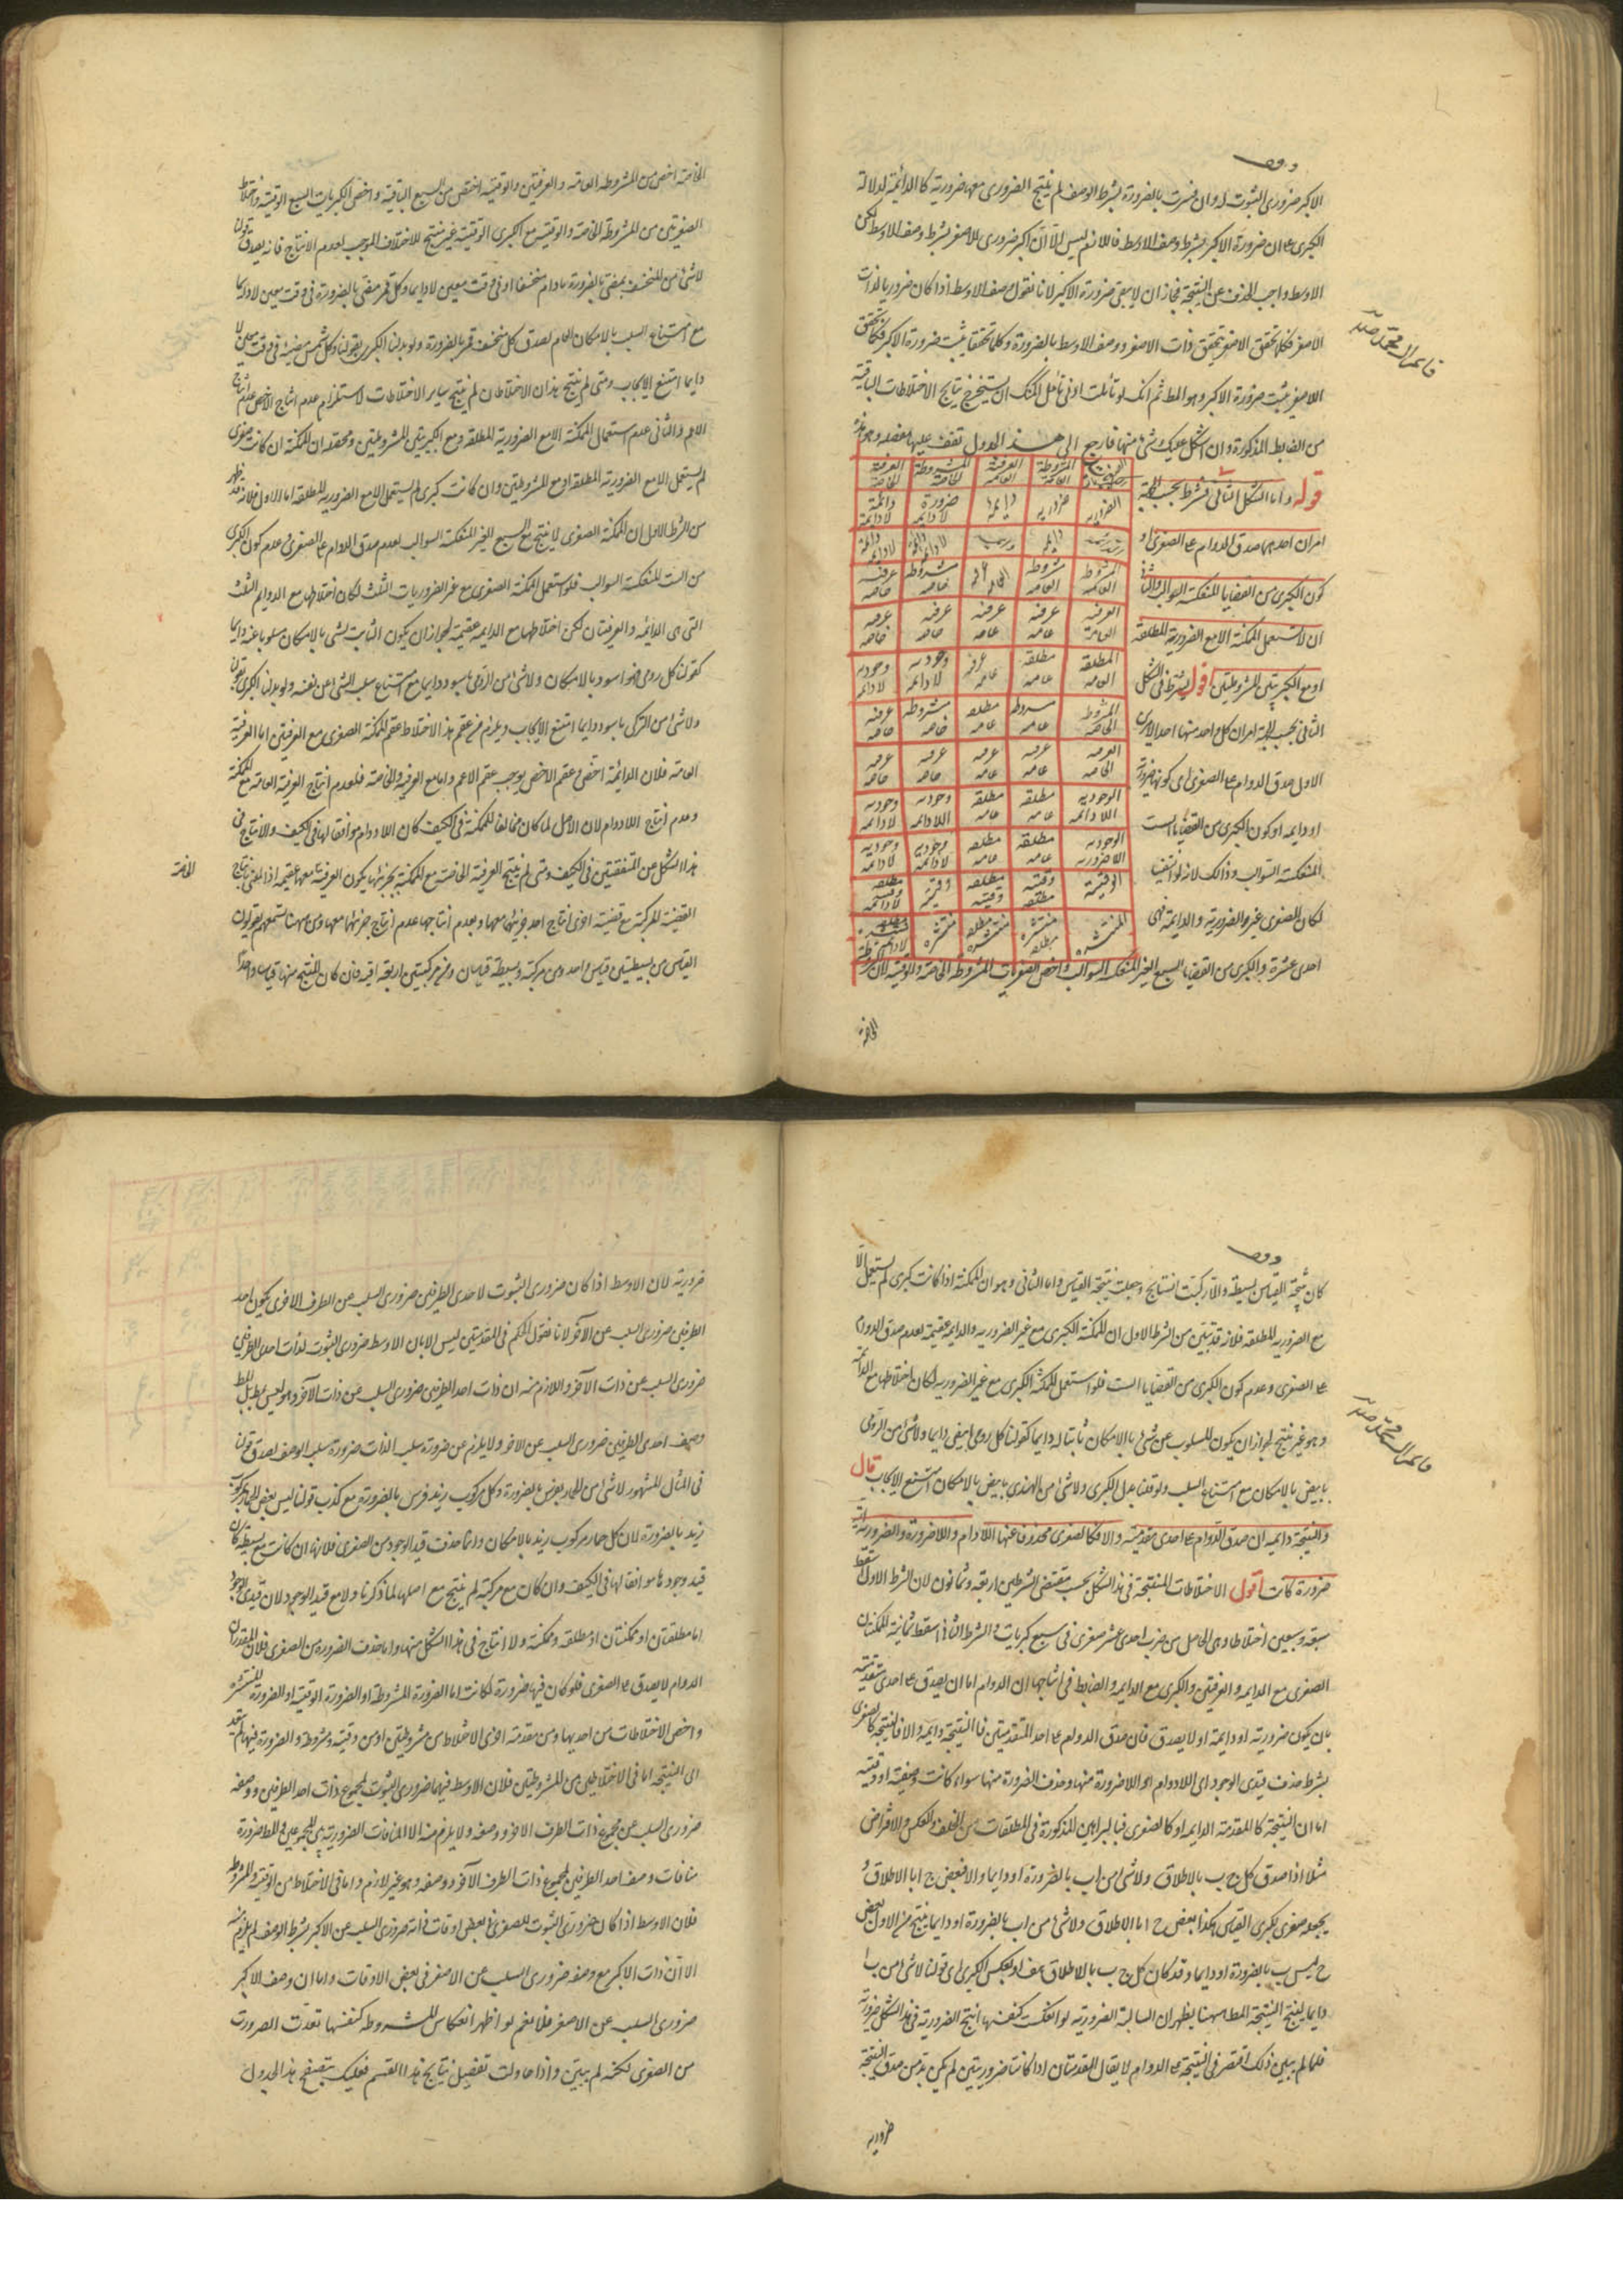 وقف
الاكبر ضرورى الثبوت له وان فسرت بالضرورة بشرط الوصف لم ينتج الضرورى معها ضرورية كالدائمة لدلالة
الكبرى على ان ضرورة الاكبر بشرط وصف الاوسط فاللازم ليس الا ان اكبر ضرورى للاصغر بشرط وصف الاوسط لكن
الاوسط واجب الحذف عن النتيجة فجاز ان لا يبقى ضرورة الاكبر لانا نقول وصف الاوسط اذا كان ضروريا لذات
الاصغر فكلما تحقق الاصغر تحقق ذات الاصغر ووصف الاوسط بالضرورة وكلما تحققا يثبت ضرورة الاكبر فكلما تحقق
الاصغر يثبت ضرورة الاكبر وهو المط ثم انك لو تاملت ادنى تامل امكنك ان تستخرج نتايج الاختلاطات الباقية
من الضابط المذكورة وان اشكل عليك شئ منها فارجع الى هذا الجدول تقف عليها مفصلة وهو هذا
المشروطة العامة العرفية العامة المشروطة الخاصة العرفية الخاصة
الضرورية ضرورية دايمة ضرورة لادايمة دائمة لادائمة
المشروطة العامة مشروطة العامة مشروطة خاصه عرفيه خاصه
العرفية العامة عرفيه عامه عرفيه عامه عرفيه خاصه عرفيه خاصه
المطلقة العامه مطلقة عامه وجوديه لادايمه وجوديه لادايمه
المشروطه الخاصه مشروطه عامه مشروطه خاصه عرفيه خاصه
العرفيه الخاصه عرفيه عامه عرفيه عامه عرفيه خاصه عرفيه خاصه
الوجوديه اللادائمه مطلقه عامه مطلقه عامه وجوديه اللادائمه وجوديه لادائمه
الوجوديه اللاضروريه مطلقه عامه مطلقه عامه وجوديه لادائمه وجوديه لادائمه
الوقتية وقتيه مطلقه مطلقه وقتيه وقتية مطلقه وقتيه لادائمه
المنتشره منتشره مطلقه مطلقه منتشره منتشره
قوله واما الشكل الثانى فشرطه بحسب الجهة
امران احدهما صدق الدوام على الصغرى او
كون الكبرى من القضايا المنعكسة السوالب والثانى
ان لا تستعمل الممكنة الا مع الضرورية المطلقة
او مع الكبريتين المشروطتين اقول يشترط فى الشكل
الثانى بحسب الجهة امران كل واحد منهما احد الامرين
الاول صدق الدوام على الصغرى اى كونها ضرورية
او دايمه او كون الكبرى من القضايا الست
المنعكسة السوالب وذلك لانه لو انتفيا
لكان الصغرى غير الضرورية والدايمة وهى
احدى عشرة والكبرى من القضايا السبع الغير المنعكسة السوالب واخص الصغريات المشروطة الخاصة والوقتية لان
الخاصة
الخاصة اخص من المشروطه العامه والعرفيتين والوقتيه اخص من السبع الباقية واخص الكبريات السبع الوقتية واختلاط
الصغرتين من المشروطة الخاصة والوقتية مع الكبرى الوقتية غير منتج للاختلاف الموجب لعدم الانتاج فانه يصدق قولنا
لا شئ من المنخسف بمضئ بالضرورة ما دام منخسفا او فى وقت معين لا دايما وكل قمر مضئ بالضرورة فى وقت معين لا دايما
مع امتناع السلب بالامكان العام لصدق كل منخسف قمر بالضرورة ولو بدلنا الكبرى بقولنا وكل شمس مضيئة فى وقت معين لا
دايما امتنع الايجاب ومتى لم ينتج هذان الاختلاطان لم ينتج ساير الاختلاطات لاستلزام عدم انتاج الاخص عدم انتاج
الاعم والثانى عدم استعمال الممكنة الا مع الضرورية المطلقه او مع الكبريتين المشروطتين ومحصله ان الممكنة ان كانت صغرى
لم يستعمل الا مع الضرورية المطلقة او مع المشروطتين وان كانت كبرى لم يستعمل الا مع الضرورية المطلقه اما الاول فلانه قد ظهر
من الشرط الاول ان الممكنة الصغرى لا ينتج مع السبع الغير المنعكسة السوالب لعدم صدق الدوام على الصغرى وعدم كون الكبرى
من الست المنعكسة السوالب فلو استعمل الممكنة الصغرى مع غير الضروريات الثلث لكان اختلاطها مع الدوايم الثلث
التى هى الدائمه والعرفيتان لكن اختلاطها مع الدايمه عقيمة لجواز ان يكون الثابت لشئ بالامكان مسلوبا عنه دايما
كقولنا كل رومى فهو اسود بالامكان ولا شئ من الرومى باسود دايما مع امتناع سلب الشئ عن نفسه ولو بدلنا الكبرى بقولنا
ولا شئ من التركى باسود دايما امتنع الايجاب ويلزم من عقم هذا الاختلاط عقم الممكنة الصغرى مع العرفيتين اما العرفية
العامه فلان الدائمة اخص وعقم الاخص يوجب عقم الاعم واما مع العرفيه الخاصة فلعدم انتاج العرفية العامه مع الممكنة
وعدم انتاج اللادوام لان الاصل لما كان مخالفا للممكنة فى الكيف كان اللادوام موافقا لها فى الكيف ولا انتاج فى
هذا الشكل عن المتفقتين فى الكيف ومتى لم ينتج العرفية الخاصة مع الممكنة بجزئيها يكون العرفية معها عقيمه اذا المعنى بانتاج الخاصة
القضية المركبة مع قضية اخرى انتاج احد جزئيها معها وبعدم انتاجها عدم انتاج جزئيها معها ومن ههنا تسمعهم يقولون
القياس من بسيطتين قياس واحد ومن مركبة وبسيطة قياسان ومن مركبتين اربعة اقيسه فان كان المنتج منها قياسا واحدا
وقف
كان نتيجة القياس بسيطة والا ركبت النتايج وجعلت نتيجة القياس واما الثانى وهو ان الممكنة اذا كانت كبرى لم يستعمل الا
مع الضرورية المطلقه فلانه قد تبين من الشرط الاول ان الممكنة الكبرى مع غير الضرورية والدايمة عقيمة لعدم صدق الدوام
على الصغرى وعدم كون الكبرى من القضايا الست فلو استعمل الممكنة الكبرى مع غير الضرورية لكان اختلاطها مع الدائمة
وهو غير منتج لجواز ان يكون المسلوب عن شئ بالامكان ثابتا له دايما كقولنا كل رومى ابيض دايما ولا شئ من الرومى
بابيض بالامكان مع امتناع السلب ولو قلنا بدل الكبرى ولا شئ من الهندى بابيض بالامكان امتنع الايجاب قال
والنتيجة دايمه ان صدق الدوام على احدى مقدمتيه والا فكالصغرى محذوفا عنها اللادوام واللاضرورة والضرورة اية
ضرورة كانت اقول الاختلاطات المنتجة فى هذا الشكل بحسب مقتضى الشرطين اربعة وثمانون لان الشرط الاول اسقط
سبعة وسبعين اختلاطا وهى الحاصل من ضرب احدى عشر صغرى فى سبع كبريات والشرط الثانى اسقط ثمانية الممكنتان
الصغرى مع الدايمه والعرفيتين والكبرى مع الدايمه والضابط فى انتاجها ان الدوام اما ان يصدق على احدى مقدمتيه
بان يكون ضرورية او دايمة او لا يصدق فان صدق الدوام على احد المقدمتين فالنتيجة دايمه والا فالنتيجة كالصغرى
بشرط حذف قيدى الوجود اى اللادوام او اللاضرورة منها وحذف الضرورة منها سواء كانت وصفية او وقتية
اما ان النتيجة كالمقدمة الدايمه او كالصغرى فبالبراهين المذكورة فى المطلقات من الخلف والعكس والافتراض
مثلا اذا صدق كل ج ب بالاطلاق ولا شئ من ا ب بالضرورة او دايما والا فبعض ج ا بالاطلاق و
يجعله صغرى لكبرى القياس هكذا بعض ج ا بالاطلاق ولا شئ من ا ب بالضرورة او دايما ينتج من الاول بعض
ج ليس ب بالضرورة او دايما وقد كان كل ج ب بالاطلاق هف او بعكس الكبرى اى قولنا لا شئ من ب ا
دايما لينتج النتيجة المطلوبه ههنا يظهر ان السالبة الضرورية لو انعكست كنفسها انتج الضرورية فى هذا الشكل ضرورية
فلما لم يتبين ذلك اقتصر فى النتيجة على الدوام لا يقال المقدمتان اذا كانتا ضروريتين لم يكن بد من صدق النتيجة
ضرورية
ضرورية لان الاوسط اذا كان ضرورى الثبوت لاحدى الطرفين ضرورى السلب عن الطرف الاخر يكون احد
الطرفين ضرورى السلب عن الآخر لانا نقول الحكم فى المقدمتين ليس الا بان الاوسط ضرورى الثبوت لذات احدى الطرفين
ضرورى السلب عن ذات الآخر واللازم منه ان ذات احد الطرفين ضرورى السلب عن ذات الآخر وهو ليس بمط بل المط
وصف احدى الطرفين ضرورى السلب عن الاخر ولا يلزم من ضرورة سلب الذات ضرورة سلب الوصف لصدق قولنا
فى المثال المشهور لا شئ من الحمار بفرس بالضرورة وكل مركوب زيد فرس بالضرورة مع كذب قولنا ليس بعض الحمار بمركوب
زيد بالضرورة لان كل حمار مركوب زيد بالامكان وانما حذفت قيد الوجود من الصغرى فلانها ان كانت مع بسيطة كان
قيد وجودها موافقا لها فى الكيف وان كان مع مركبة لم ينتج مع اصلها لما ذكرنا ولا مع قيد الوجود لان قيدى الوجود
اما مطلقتان او ممكنتان او مطلقه وممكنة ولا انتاج فى هذا الشكل منها واما حذف الضرورة من الصغرى فلان المقدر ان
الدوام لا يصدق على الصغرى فلو كان فيها ضرورة لكانت اما الضرورة المشروطة او الضرورة الوقتية او الضرورة المنتشرة
واخص الاختلاطات من احديها ومن مقدمة اخرى الاختلاط من مشروطتين او من وقتية ومشروطة والضرورة فيهما لم تتعد
الى النتيجة اما فى الاختلاط من المشروطتين فلان الاوسط فيهما ضرورى الثبوت لمجموع ذات احد الطرفين ووصفه
ضرورى السلب عن مجموع ذات الطرف الاخر ووصفه ولا يلزم منه الا المنافات الضرورية بين المجموعين والمط ضرورة
منافات وصف احد الطرفين لمجموع ذات الطرف الآخر ووصفه وهو غير لازم واما فى الاختلاط من الوقتية والمشروطة
فلان الاوسط اذا كان ضرورى الثبوت للصغرى فى بعض اوقات ذاته ضرورى السلب عن الاكبر بشرط الوصف لم يلزم منه
الا ان ذات الاكبر مع وصفه ضرورى السلب عن الاصغر فى بعض الاوقات واما ان وصف الاكبر
ضرورى السلب عن الاصغر فلا نعم لو اظهر انعكاس المشروطه كنفسها تعدت الضرورت
من الصغرى لكنه لم يتبين واذا حاولت تفصيل نتايج هذا القسم فعليك بتصفح هذا الجدول